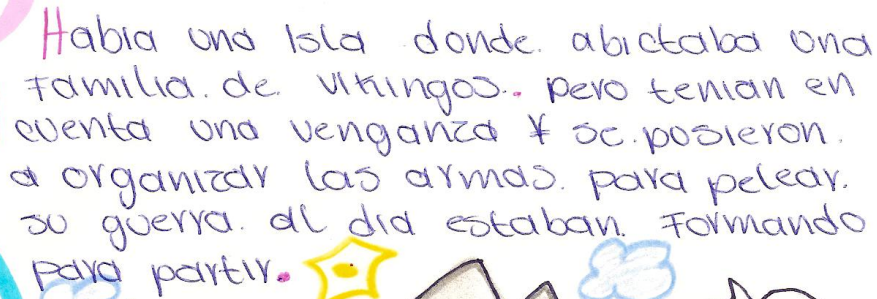 Habia una Isla donde. abictaba una
Familia. de. vikingos.. pero tenian en
cuenta una venganza Y se. posieron.
a organizar las armas. para pelear.
su guerra. al dia estaban. Formando
para partir.